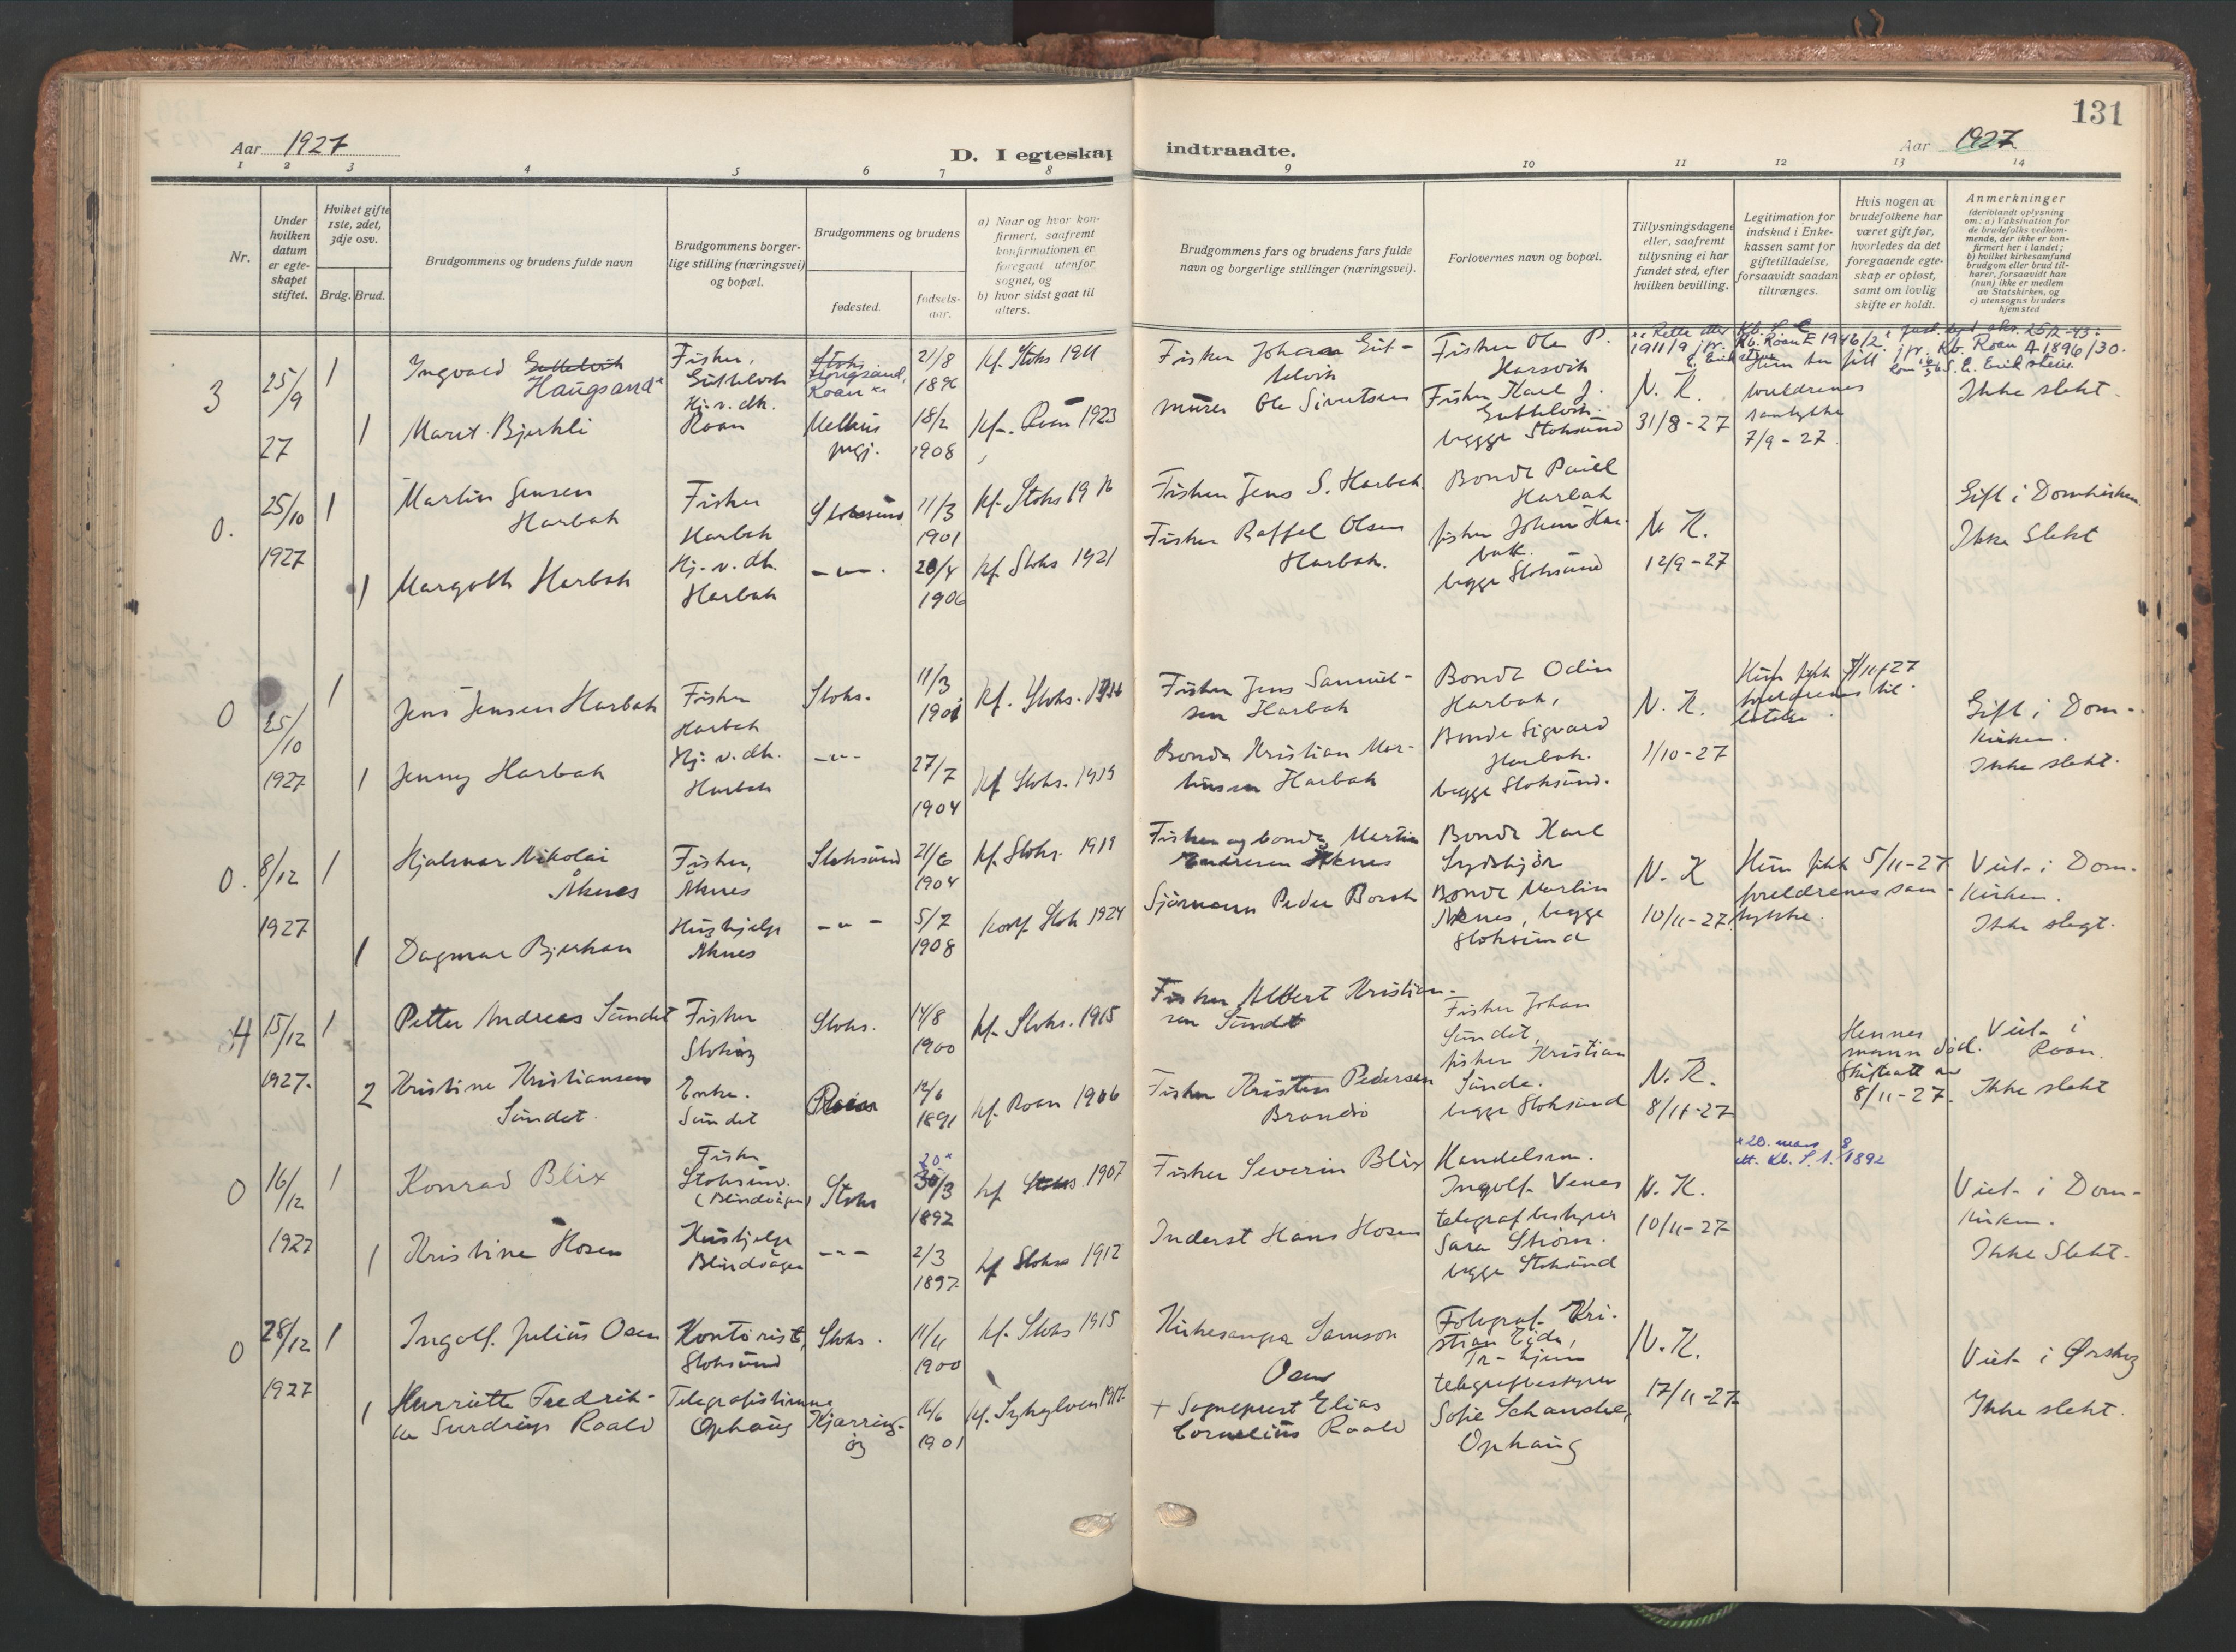 131
Aar 1927
D. I egteskap
indtraadte.
Aar 1927
1 2 3 4 5 6 7 8 9 10 11 12 13 14
Nr.
Under hvilken datum er egteskapet stiftet.
Hviket gifte 1ste, 2det, 3dje osv.
Brdg. Brud.
Brudgommens og brudens fulde navn
Brudgommens borgerlige stilling (næringsvei) og bopæl.
Brudgommens og brudens
fødested.
fødselsaar.
a) Naar og hvor konfirmert, saafremt konfirmationen er foregaat utenfor sognet, og
b) hvor sidst gaat til alters.
Brudgommens fars og brudens fars fulde navn og borgerlige stillinger (næringsvei).
Forlovernes navn og bopæl.
Tillysningsdagene eller, saafremt tillysning ei har fundet sted, efter hvilken bevilling.
Legitimation for indskud i Enkekassen samt for giftetilladelse, forsaavidt saadan tiltrænges.
Hvis nogen av brudefolkene har været gift før, hvorledes da det foregaaende egteskap er opløst, samt om lovlig skifte er holdt.
Anmerkninger
(deriblandt oplysning om: a) Vaksination for de brudefolks vedkommende, der ikke er konfirmert her i landet; b) hvilket kirkesamfund brudgom eller brud tilhører, forsaavidt han (hun) ikke er medlem av Statskirken, og c) utensogns bruders hjemsted
3
25/9 27
1
Ingvald Guttelvik
Haugsand
Fisker,
Guttelvik
Roan
21/8
1896
kf. Stoks 1911
Fisker Johan Guttelvik
Fisker Ole P.
Harsvik
1
Marit Bjerkli
Hj. v. dh.
Roan
Melhus
pgj.
18/2
1908
kf. Roan 1923
murer Ole Sivertsen
Fisker Karl J.
Guttelvik
begge Stoksund
N. K.
31/8-27
foreldrenes
samtykke
7/9-27.
Ikke slekt.
0.
25/10
1927
1
Martin Jensen
Harbak
Fisker
Harbak
Stoksund
11/3
1901
kf. Stoks 1916
Fisker Jens S. Harbak.
Bonde Paul
Harbak
Gift i Domkirken
1
Margoth Harbak
Hj. v. dh.
Harbak
- " - .
20/4
1906
kf. Stoks 1921
Fisker Raffel Olsen
Harbak.
fisker Johan Harbak.
begge Stoksund
N. K.
12/9-27
Ikke Slekt
0
25/10
1927
1
Jens Jensen Harbak
Fisker
Harbak
Stoks.
11/3
1901
kf. Stoks.
Fisker Jens Samuelsen Harbak
Bonde Odin
Harbak,
Gift i Domkirken.
1
Jenny Harbak
Hj. v. dh.
Harbak
- " -
27/7
1904
kf Stoks. 1919
Bonde Kristian Martinsen Harbak
Bonde Sigvard
Harbak.
begge Stoksund.
N. K.
1/10-27
Ikke slekt.
0.
8/12
1927
1
Hjalmar Nikolai
Åknes
Fisker,
Åknes
Stoksund
21/6
1904
kf. Stoks. 1919
Fisker og bonde Martin
Andresen Åknes
Bonde Karl
Sydskjør
Hun fikk 5/11-27
foreldrenes samtykke.
Viet i Domkirken.
1
Dagmar Bjerkan
Hushjelp
Åknes
- " -
5/7
1908
konf. Stok 1924
Sjømann Peder Borsk
Bonde Martin
Åknes, begge
Stoksund
N. K
10/11-27
Ikke slegt.
4
15/12
1927.
1
Petter Andreas Sundet
Fisker
Stokøy
Stoks.
14/8
1900
kf. Stoks. 1915
Fisker Albert Kristiansen Sundet
Fisker Johan
Sundet,
2
Kristine Kristiansen
Sundet.
Enke.
Sundet
Roan
12/6
1891
kf. Roan 1906
Fisker Kristen Pedersen
Brandsø
fisker Kristian
Sunde.
begge Stoksund
N. K.
8/11-27
Hennes
mann død.
Skifteatt av
8/11-27.
Viet i
Roan.
Ikke slekt
0
16/12
1927
1
Konrad Blix
Fisker
Stoksund.
(Blindvågen)
Stoks
20
30/3
1892
kf Stoks. 1907
Fisker Severin Blix
Handelsm.
Ingolf Venes
20. mars
1892
Viet i Domkirken.
1
Kristine Hosen
Hushjelp
Blindvågen
- " -
2/3
1897.
kf Stoks 1912
Inderst Hans Hosen
telegrafbestyrer
Sara Strøm.
begge Stoksund
N. K.
10/11-27
Ikke Slekt.
0
28/12
1927
1
Ingolf Julius Osen
Kontorist,
Stoksund
Stoks.
11/11
1900
kf. Stoks 1915
Kirkesanger Samson
Osen
Fotograf Kristian Eide,
Tr-hjem
Viet i Ørskog
1
Henriette Fredrikke Sverdrup Roald
Telegrafistinne
Ophaug
Kjerringøy
16/6
1901
kf. Sykylven 1917
+ Sogneprest Elias
Cornelius Roald
telegrafbestyrer
Sofie Schanche,
Ophaug
N. K.
17/11-27
Ikke slekt.